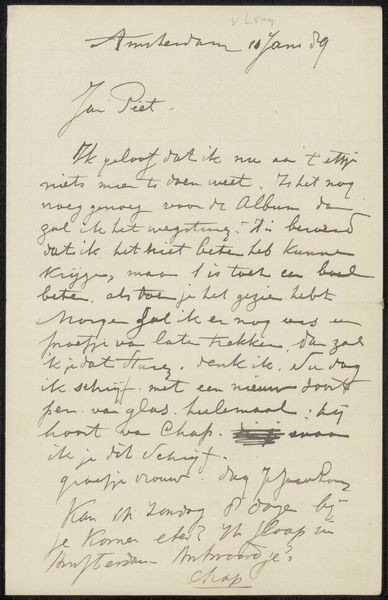 Amsterdam 10 Jan 89
Jan Piet.
Ik geloof dat ik nu aan 't etsje
niets meer te doen weet. Is het nog
vroeg genoeg voor de Album dan
zal ik het wegsturen.
dat ik het niet beter heb kunnen
krijgen, maar 't is toch een boel
beter, als toen je het gezien hebt
Morgen zal ik er nog eens een
proefje van laten trekken. Dan zal
ik je dat sturen, denk ik. Nu dag
ik schrijf met een nieuw soort
pen van glas. helemaal. hij
hoort van Chap.
ik je dit schrijf.
groetje vrouw. dag
Kan ik Zondag 8 dagen bij
je komen eten? Ik slaap in
Amsterdam Antwoord je?
Chap